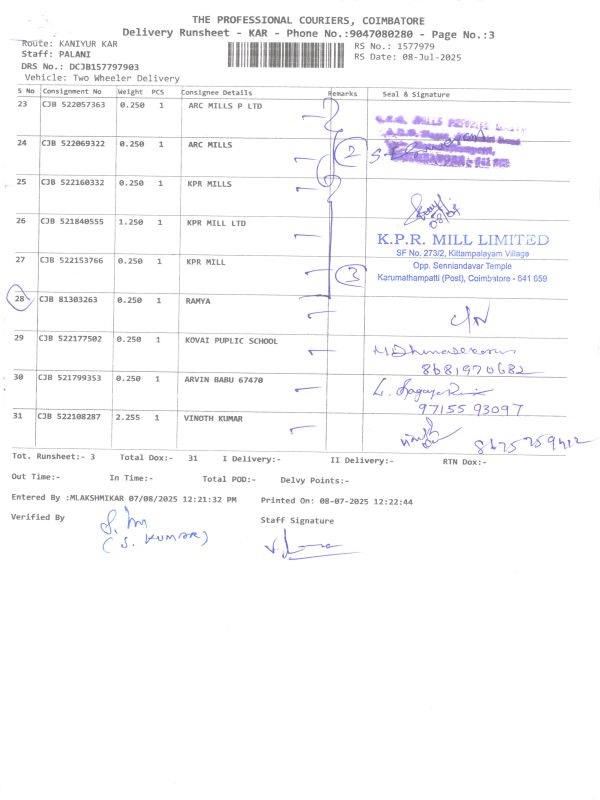 THE PROFESSIONAL COURIERS, COIMBATORE
Delivery Runsheet - KAR - Phone No.:9047080280 - Page No.:3
Route: KANIYUR KAR
RS No.: 1577979
Staff: PALANI
RS Date: 08-Jul-2025
DRS No.: DCJB157797903
Vehicle: Two Wheeler Delivery
S No Consignment No Weight PCS Consignee Details Remarks Seal & Signature
23 CJB 522057363 0.250 1 ARC MILLS P LTD
24 CJB 522069322 0.250 1 ARC MILLS 2
25 CJB 522160332 0.250 1 KPR MILLS
08/07
26 CJB 521840555 1.250 1 KPR MILL LTD
K.P.R. MILL LIMITED
SF No. 273/2, Kittampalayam Village
27 CJB 522153766 0.250 1 KPR MILL 3
Opp. Senniandavar Temple
Karumathampatti (Post), Coimbatore - 641 659
28 CJB 81303263 0.250 1 RAMYA
C/N
29 CJB 522177502 0.250 1 KOVAI PUPLIC SCHOOL
8681970682
30 CJB 521799353 0.250 1 ARVIN BABU 67470
97155 93097
31 CJB 522108287 2.255 1 VINOTH KUMAR
Tot. Runsheet:- 3 Total Dox:- 31 I Delivery:- II Delivery:- RTN Dox:-
Out Time:- In Time:- Total POD:- Delvy Points:-
Entered By :MLAKSHMIKAR 07/08/2025 12:21:32 PM Printed On: 08-07-2025 12:22:44
Verified By
Staff Signature
(S. KUMAR)